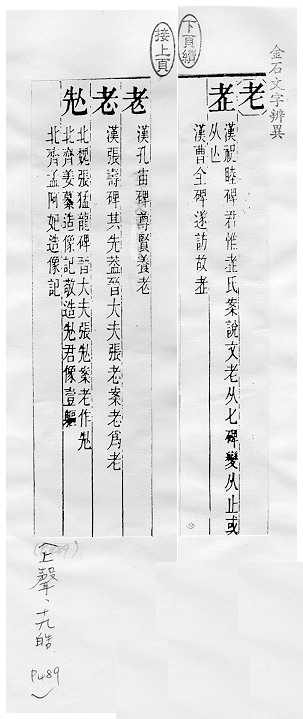 金石文字辨異
下頁續
老
漢祝睦碑君惟𦒱氏案說文老从七碑變从止或
从山
𦒱
漢曹全碑遂訪故𦒱
接上頁
老
漢孔宙碑尊賢養老
㐂
漢張壽碑其先葢晉大夫張老案老為老
北魏張猛龍碑晉大夫張𠈣案老作𠈣
北齊姜纂造像記敬造𠈣君像壹軀
北齊孟阿妃造像記
上聲、十九皓
P.489